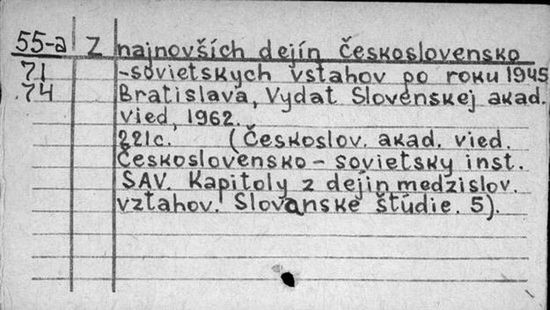 55-а Z najnovších dejín Československo
71 -sovietskych vstahov po roku 1945
74 Bratislava, Vydat Slovenskej akad.
vied, 1962.
221c. (Českoslov. akad. vied.
Československo-sovietsky inst.
SAV. Kapitoly z dejin medzislov.
vzťahov. Slovanske študie. 5).